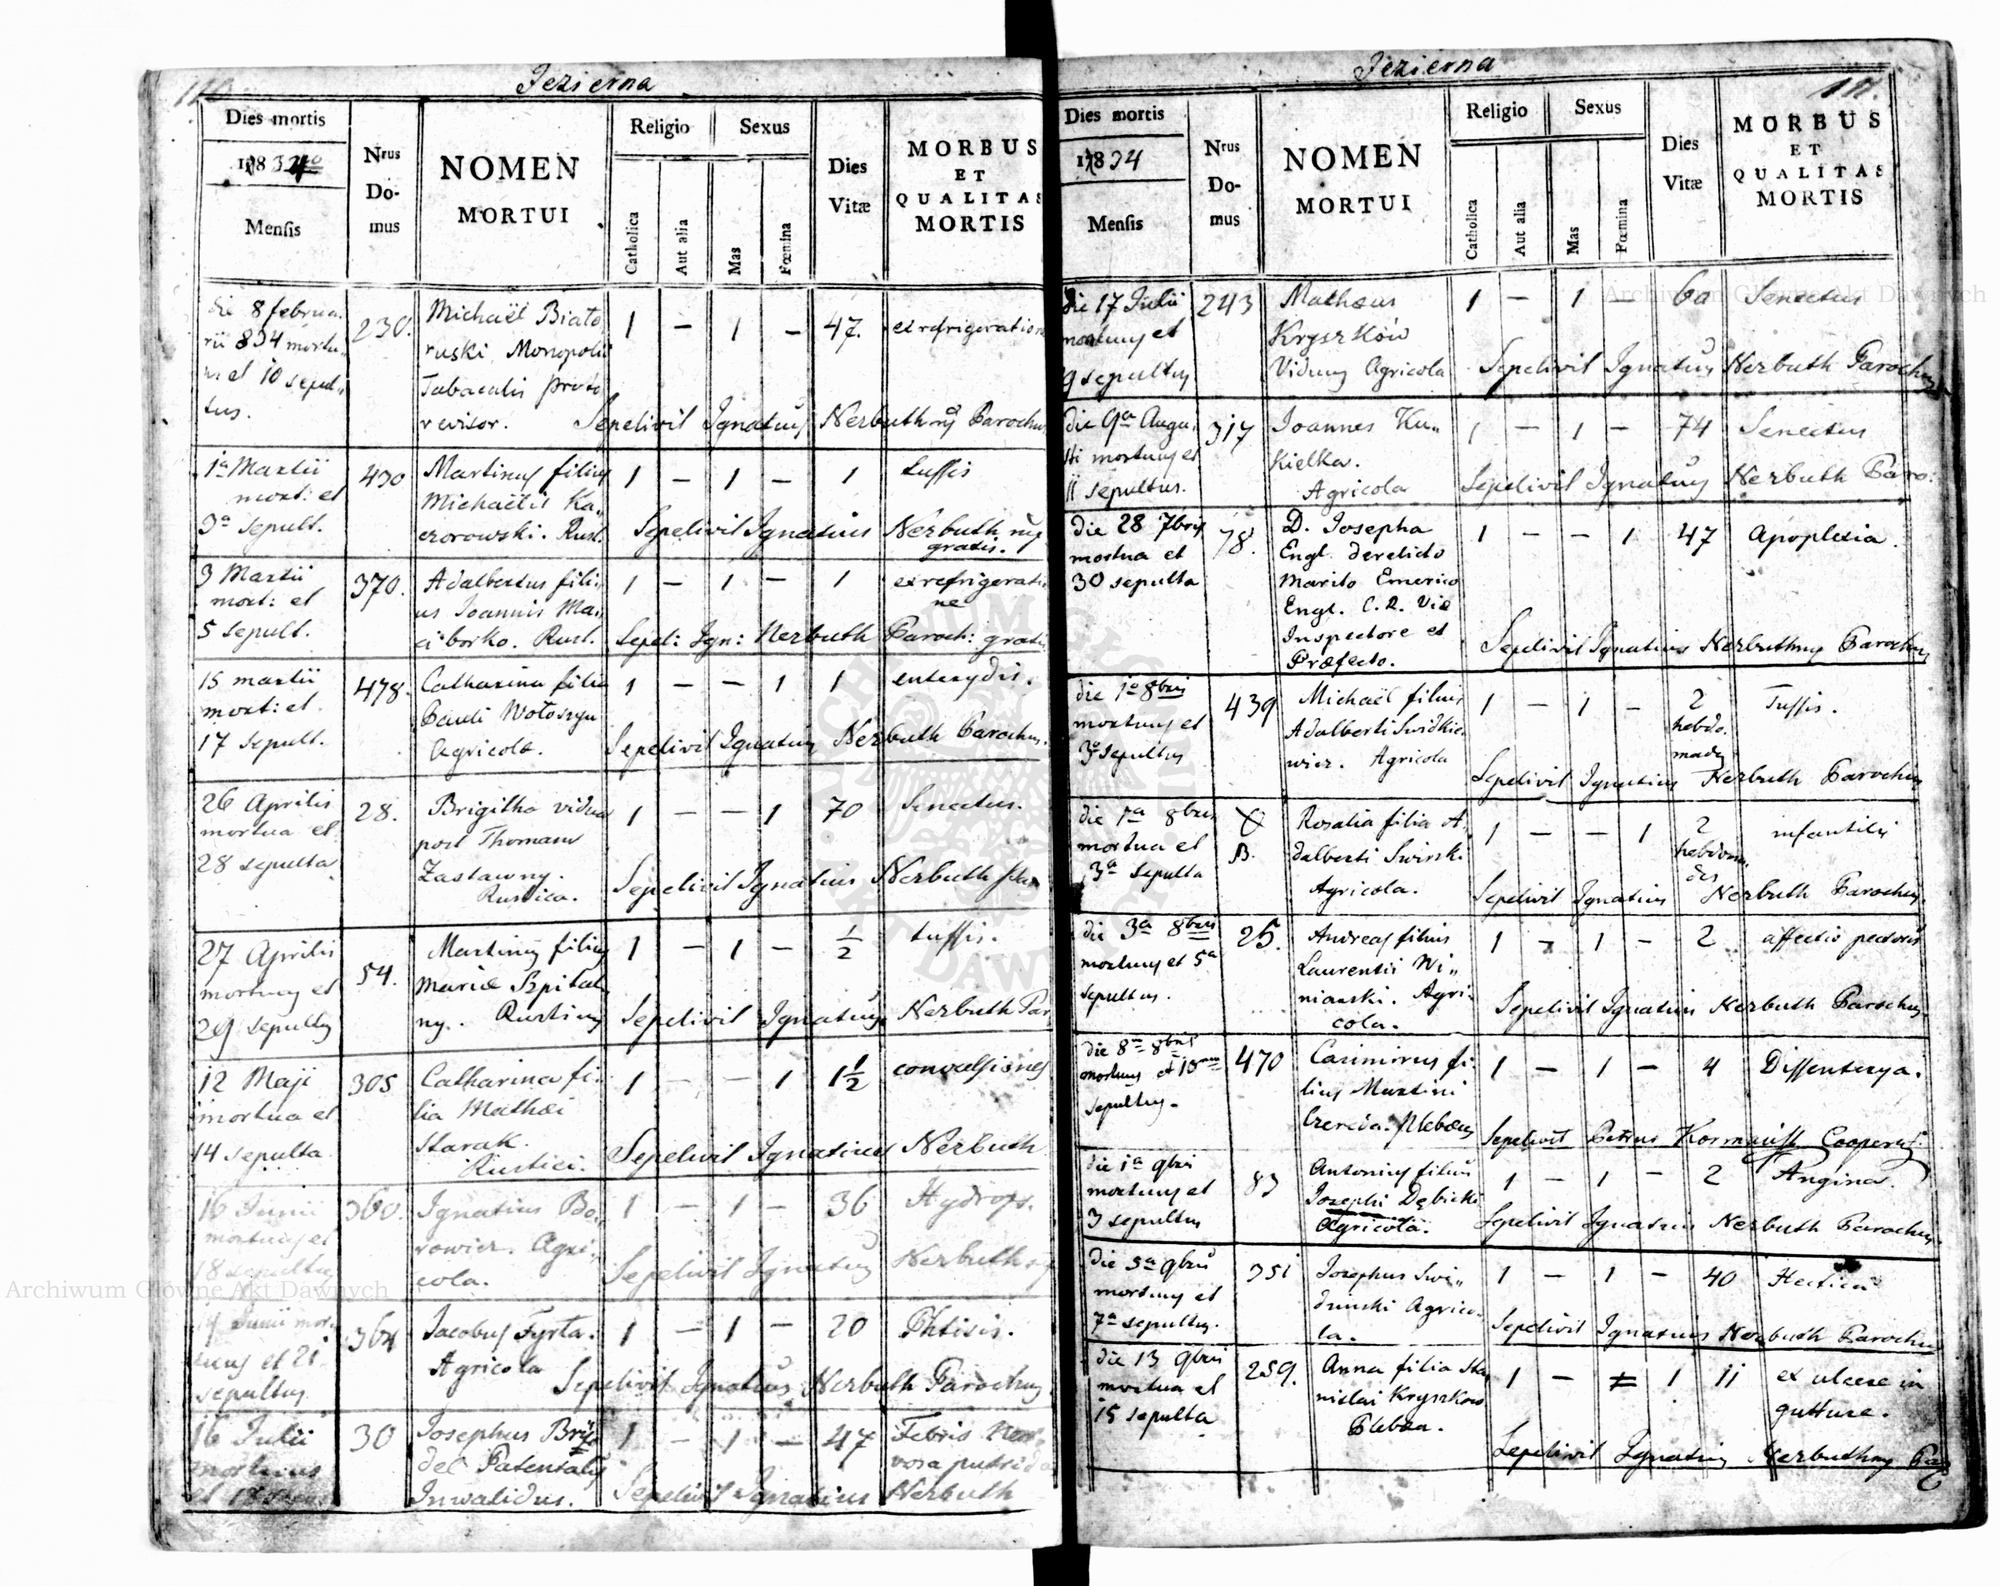 Jezierna
Dies mortis
1834to
Mensis
Nrus
Do-
mus
NOMEN
MORTUI
Religio
Sexus
Catholica
Aut alia
Mas
Fœmina
Dies
Vitæ
MORBUS
ET
QUALITAS
MORTIS
die 8 februa,
rii 834 mortu,
us et 10 sepul,
tus.
230.
Michaël Biało,
ruski Monopolii
Tabacalis proto
revisor.
1 — 1 — 47. ex refrigeratione
Sepelivit Ignatius Nerbuthus Parochus
1a Martii
mort: et
3a sepult.
430
Martinus filius
Michaëlis Ka,,
czorowski. Rust.
1 — 1 — 1 tussis
Sepelivit Ignatius Nerbuth mp
gratis.
3 Martii
mort: et
5 sepult.
370.
Adalbertus fili,,
us Joannis Ma,,
ciborko. Rust.
1 — 1 — 1 ex refrigeratio
ne
Sepel: Ign: Nerbuth Paroch: gratis
15 martii
mort: et.
17 sepult.
478.
Catharina filia
Pauli Wołoszyn
Agricolæ.
1 — — 1 1
Sepelivit Ignatius Nerbuth Parochus.
26 Aprilis
mortua et
28 sepulta
28.
Brigitha vidua
post Thomam
Zastawny.
Rustica.
1 — — 1 70 Senectus.
Sepelivit Ignatius Nerbuth
27 Aprilis
mortuus et
29 sepultus
54.
Martinus filius
Mariæ Szpital,
ny. Rustinus
1 — 1 — 1/2 tussis.
Sepelivit Ignatius Nerbuth Par
12 Maji
mortua et
14 sepulta
305
Catharina fi,
lia Mathæi
Starak.
Rustici.
1 — — 1 1 1/2 convulsiones
Sepelivit Ignatius Nerbuth
16 Junii
mortuus et
18 sepultus
360.
Ignatius Bo,
rowicz. Agri,,
cola.
1 — 1 — 36 Hydrops.
Sepelivit Ignatius Nerbuth
Junii mor,
tuus et 21
sepultus
364
Jacobus Fyrta.
Agricola
1 — 1 — 20 Phtisis.
Sepelivit Ignatius Nerbuth Parochus
16 Julii
mortuus
et 18
30
Josephus
del Patentalis
Inwalidus.
1 — 1 — 47 Febris Ner,
vosa putrida
Sepelivit Ignatius Nerbuth
Jezierna
Dies mortis
1834
Mensis
Nrus
Do-
mus
NOMEN
MORTUI
Religio
Sexus
Catholica
Aut alia
Mas
Fœmina
Dies
Vitæ
MORBUS
ET
QUALITAS
MORTIS
die 17 Julii
mortuus et
19 sepultus
243
Mathæus
Kryszków
Viduus Agricola
1 — 1 — 60 Senectus
Sepelivit Ignatius Nerbuth Parochus
die 9a Augu,
sti mortuus et
11 sepultus.
317
Joannes Ku,,
kielka.
Agricola
1 — 1 — 74 Senectus
Sepelivit Ignatius Nerbuth Paro:
die 28 7bris
mortua et
30 sepulta
78.
D. Josepha
Engl. derelicto
Marito Emerico
Engl. C. R. Viæ
Inspectore et
Præfecto.
1 — — 1 47 Apoplexia.
Sepelivit Ignatius Nerbuthus Parochus
die 1a 8bris
mortuus et
3a sepultus
439
Michaël filius
Adalberti Swidkie,
wicz. Agricola
1 — 1 — 2
hebdo,
mades
Tussis.
Sepelivit Ignatius Nerbuth Parochus
die 1a 8bris
mortua et
3a sepulta
B.
Rosalia filia A,
dalberti Swirski
Agricola.
1 — — 1 2
hebdoma,
des
infantilis
Sepelivit Ignatius Nerbuth Parochus.
die 3a 8bris
mortuus et 5a
sepultus.
25.
Andreas filius
Laurentii Wi,,
niarski. Agri,
cola.
1 — 1 — 2 affectio pectoris
Sepelivit Ignatius Nerbuth Parochus.
die 8a 8bris
mortuus et 10ma
sepultus.
470
Casimirus fi,
lius Martini
Czereda. Plebæus
1 — 1 — 4 Dissenterya.
Sepelivit Petrus Cooperat:
die 1a 9bris
mortuus et
3 sepultus
83
Antonius filius
Josephi Dębicki
Agricola.
1 — 1 — 2 Angina.
Sepelivit Ignatius Nerbuth Parochus.
die 5a 9bris
mortuus et
7a sepultus.
351
Josephus Swi,,
dunski Agrico,
la.
1 — 1 — 40 Hectica
Sepelivit Ignatius Nerbuth Parochus
die 13 9bris
mortua et
15 sepulta
259.
Anna filia Sta,
nislai Kryszkow
Plebæa.
1 — — 1 11 ex ulcere in
gutture.
Sepelivit Ignatius Nerbuthus Par
Archiwum Główne Akt Dawnych
Archiwum Główne Akt Dawnych
ARCHIWUM GŁÓWNE AKT DAWNYCH